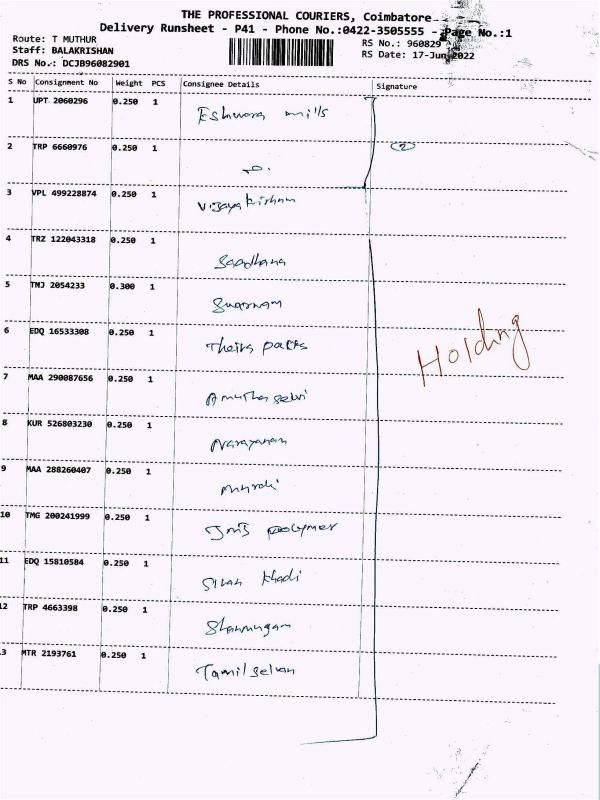 THE PROFESSIONAL COURIERS, Coimbatore
Delivery Runsheet - P41 - Phone No.:0422-3505555 - Page No.:1
Route: T MUTHUR
RS No.: 960829
Staff: BALAKRISHAN
RS Date: 17-Jun-2022
DRS No.: DCJB96082901
S No Consignment No Weight PCS Consignee Details Signature
1 UPT 2060296 0.250 1 Eshwara mills
2 TRP 6660976 0.250 1 -D. 2
3 VPL 499228874 0.250 1 Vijayakrishnan
4 TRZ 122043318 0.250 1 Saadhana
5 TNJ 2054233 0.300 1 Swarnam
6 EDQ 16533308 0.250 1 Theirs
Holding
7 MAA 290087656 0.250 1 Amuthaselvi
8 KUR 526803230 0.250 1 Narayanan
9 MAA 288260407 0.250 1 Murali
10 TMG 200241999 0.250 1 polymer
11 EDQ 15810584 0.250 1 Sivan Khadi
12 TRP 4663398 0.250 1 Shanmugam
13 MTR 2193761 0.250 1 Tamilselvan